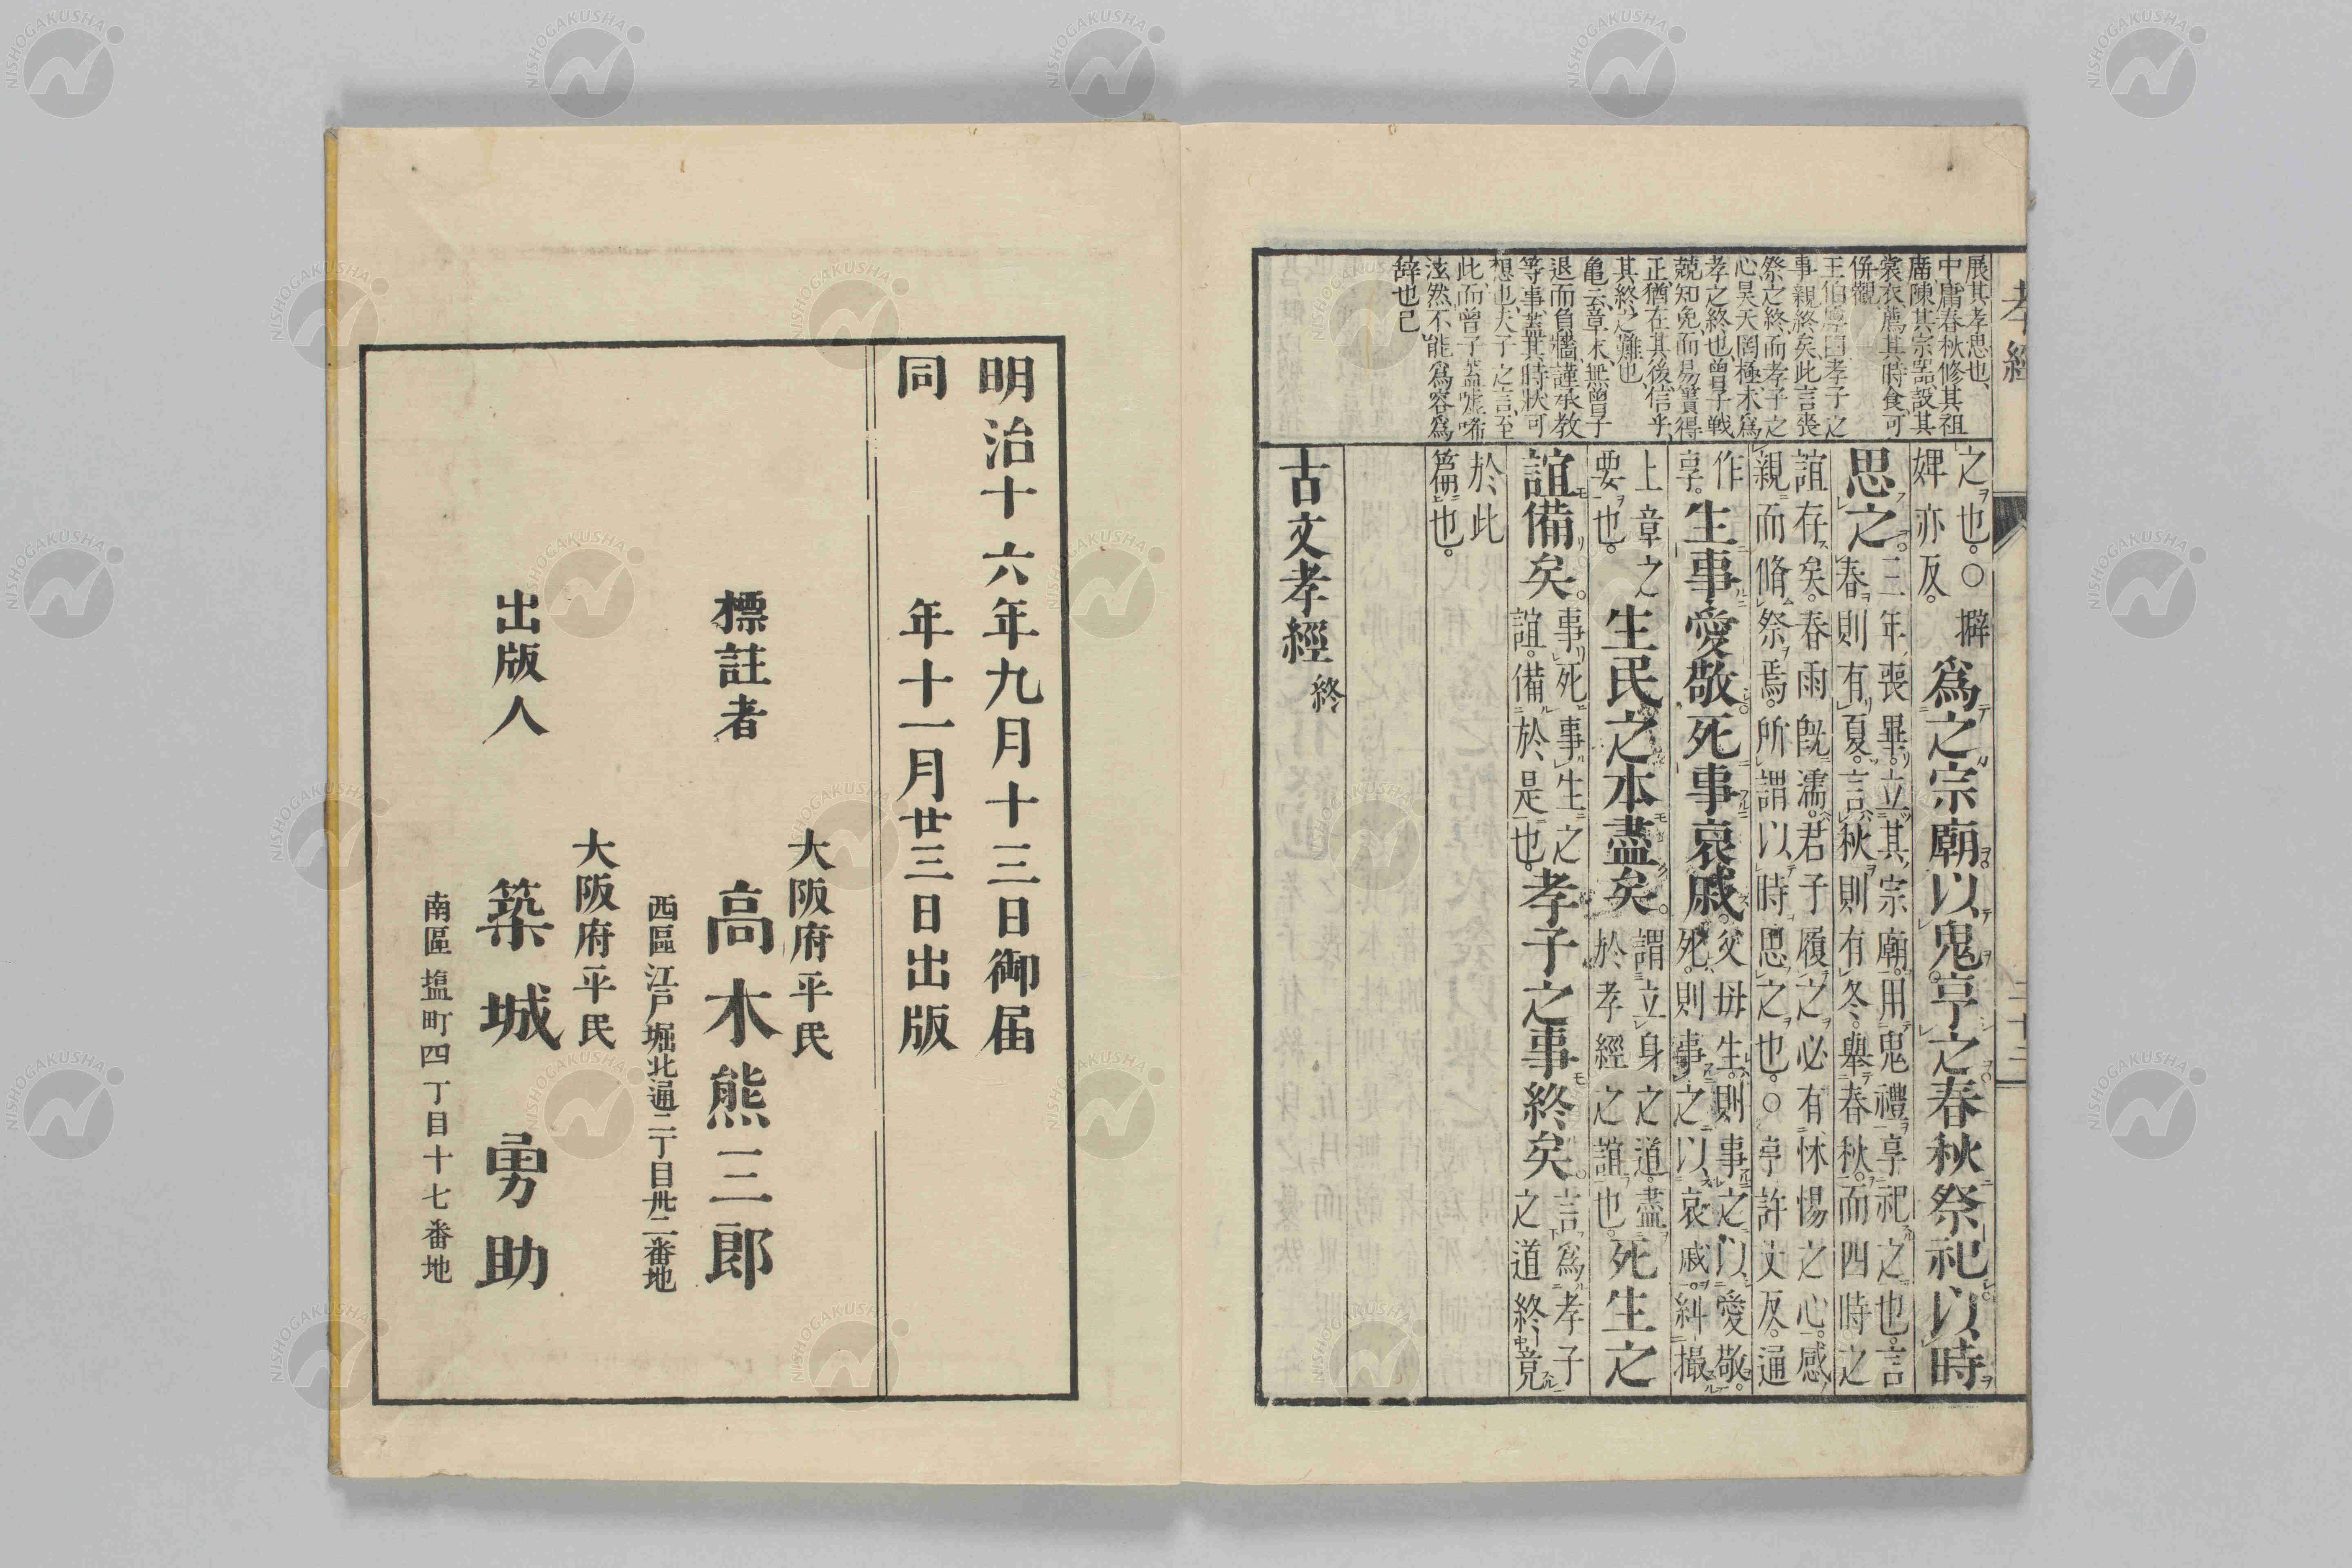 展其孝思也、
中庸春秋修其祖
廟陳其宗器、設其
裳衣、薦其時食、可
併觀
王伯厚曰孝子之
事親終矣、此言喪
祭之終、而孝子之
心昊天罔極、未爲
孝之終也、曾子戰
兢知免、而易簀得
正猶在其後、信乎、
其終之難也、
亀云、章末、無曾子
退而負牆、謹承教
等事、蓋其時狀可
想也、夫子之言至
此、而曾子蓋嘘唏
泫然不能爲容爲
辞也已
之也。○擗
婢亦反。
爲之宗廟以鬼享之春秋祭祀以時
思之
三年喪畢。立其宗廟。用鬼禮享祀之也。言
春則有夏。言秋則有冬。擧春秋。而四時之
誼存矣。春雨旣濡。君子履之必有怵惕之心。感
親而脩祭焉。所謂以時思之也。○享許丈反。通
作
享。
生事愛敬死事哀戚
父母生。則事之以愛敬。
死。則事之以哀戚。糾撮
上章之
要也。
生民之本盡矣
謂立身之道。盡
於孝經之誼也。
死生之
誼備矣。
事死事生之
誼。備於是也。
孝子之事終矣。
言爲孝子
之道終竟
於此
篇也。
古文孝經終
孝經
二十三
明治十六年九月十三日御届
同年十一月廿三日出版
大阪府平民
標註者 高木熊三郎
西區江戸堀北通二丁目卅二番地
大阪府平民
出版人 築城勇助
南區塩町四丁目十七番地
NISHOGAKUSHA